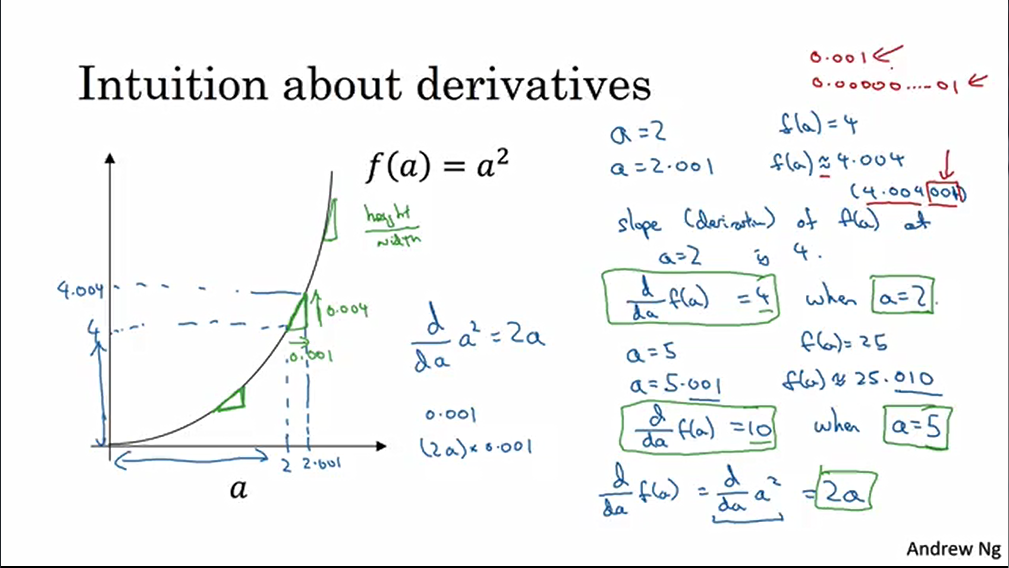 Intuition about derivatives
0.001
0.00000....01
f(a) = a²
height
width
4.004
4
0.004
0.001
2 2.001
a
d/da a² = 2a
0.001
(2a) × 0.001
a = 2 f(a) = 4
a = 2.001 f(a) ≈ 4.004
(4.004001)
slope (derivative) of f(a) at
a = 2 is 4.
d/da f(a) = 4 when a = 2.
a = 5 f(a) = 25
a = 5.001 f(a) ≈ 25.010
d/da f(a) = 10 when a = 5
d/da f(a) = d/da a² = 2a
Andrew Ng